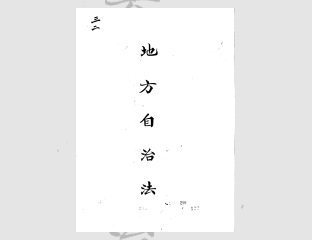 三二
地方自治法